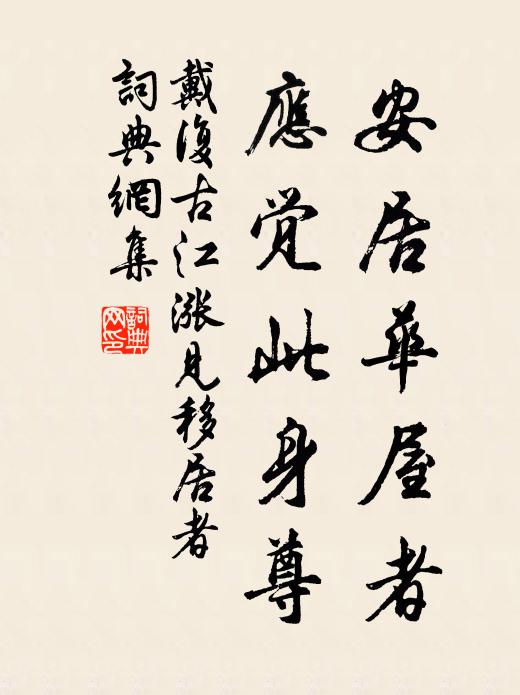 安居華屋者
應觉此身尊
戴復古江漲見移居者
詞典網集
詞典网印